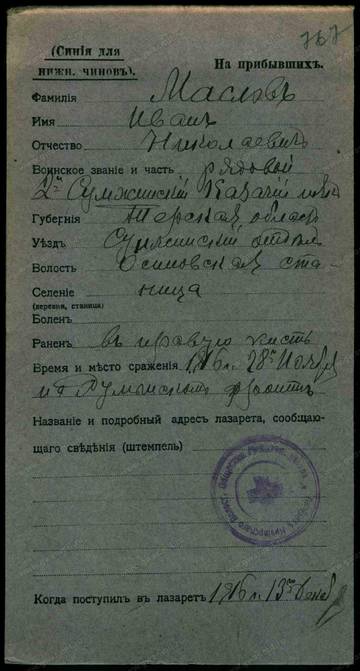 767
(Синія для
нижн. чиновъ).
На прибывшихъ.
Фамилія Масловъ
Имя Иванъ
Отчество Николаевичъ
Воинское званіе и часть рядовой
2й Сунжинскій Казачій
Губернія Терская область
Уѣздъ Сунженскій отдѣлъ
Волость ская ста-
Селеніе ница
(деревня, станица)
Боленъ
Раненъ въ правую кисть
Время и мѣсто сраженія 1916 г. 28го Ноября
на Румынскомъ фронтѣ
Названіе и подробный адресъ лазарета, сообщаю-
щаго свѣдѣнія (штемпель)
Когда поступилъ въ лазаретъ 1916 г. 13го Декаб